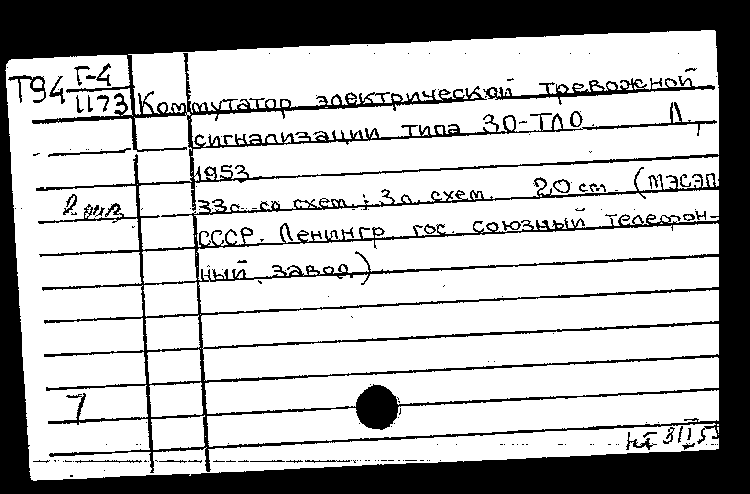 Т94 Г-4
1173 Коммутатор электрической тревожной
сигнализации типа ЗО-ТЛО. Л.,
1953.
2 экз 33с. со схем.; 3л. схем. 20 см. (МЭСЭП
СССР. Ленингр. гос. союзный телефон-
ный завод.)
7